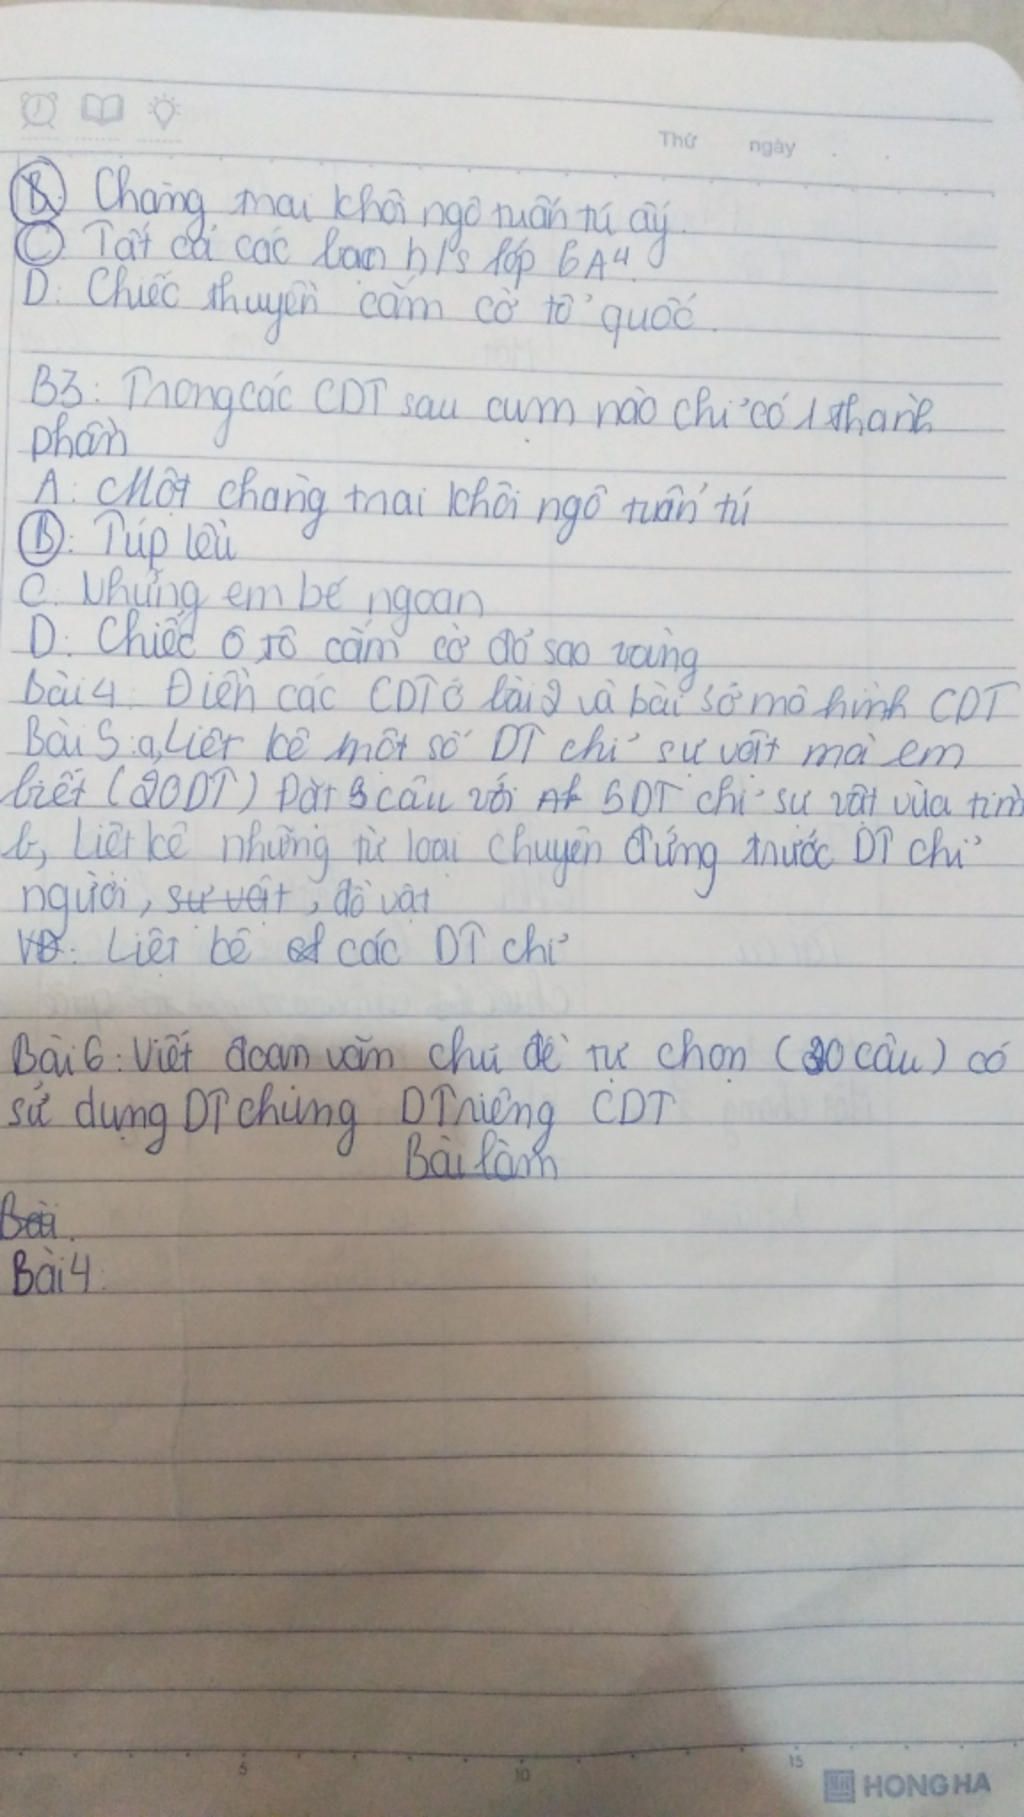 Thứ ngày
B. Chàng trai khôi ngô tuấn tú ấy.
C. Tất cả các bạn h/s lớp 6A4.
D. Chiếc thuyền cắm cờ tổ quốc.
B3: Trong các CDT sau cụm nào chỉ có 1 thành
phần
A: Một chàng trai khôi ngô tuấn tú
B: Túp lều
C. Những em bé ngoan
D. Chiếc ô tô cắm cờ đỏ sao vàng
Bài 4: Điền các CDT ở bài 2 và bài 3 ở mô hình CDT
Bài 5: a, Liệt kê một số DT chỉ sự vật mà em
biết (20DT) Đặt 3 câu với 5DT chỉ sự vật vừa tìm
b, Liệt kê những từ loại chuyên đứng trước DT chỉ
người, sự vật, đồ vật
VD: Liệt kê các DT chỉ
Bài 6: Viết đoạn văn chủ đề tự chọn (20 câu) có
sử dụng DT chung DT riêng CDT
Bài làm
Bài.
Bài 4:
5 10 15
HONG HA